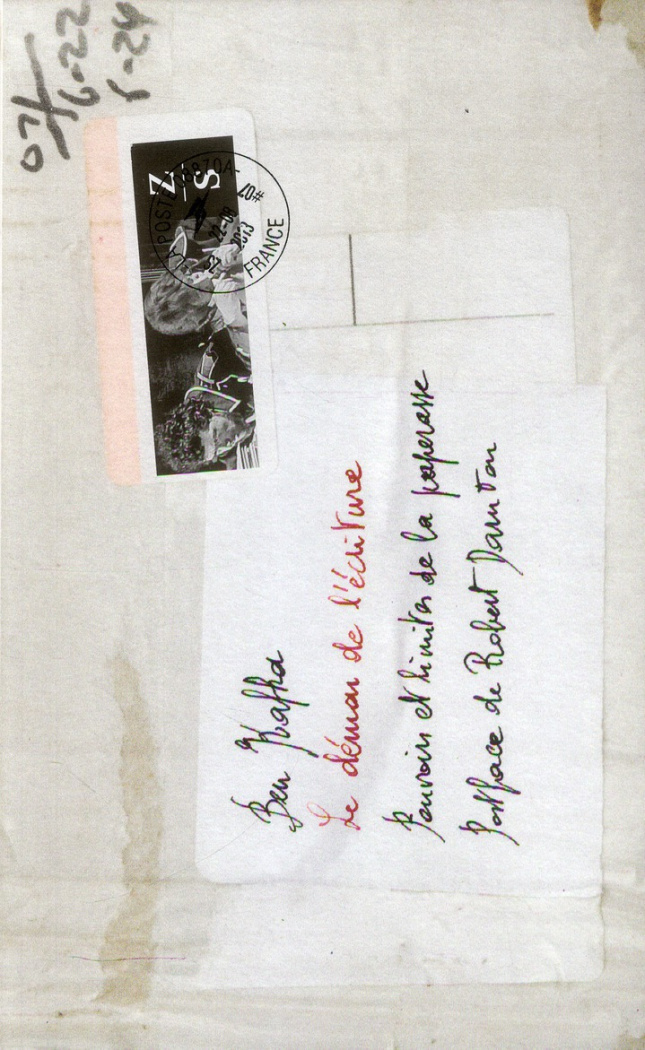 07/
6-22
Z
S
LA POSTE
22-08
2013
FRANCE
Ben Kafka
Le démon de l'écriture
Pouvoirs et limites de la paperasse
Postface de Robert Darnton